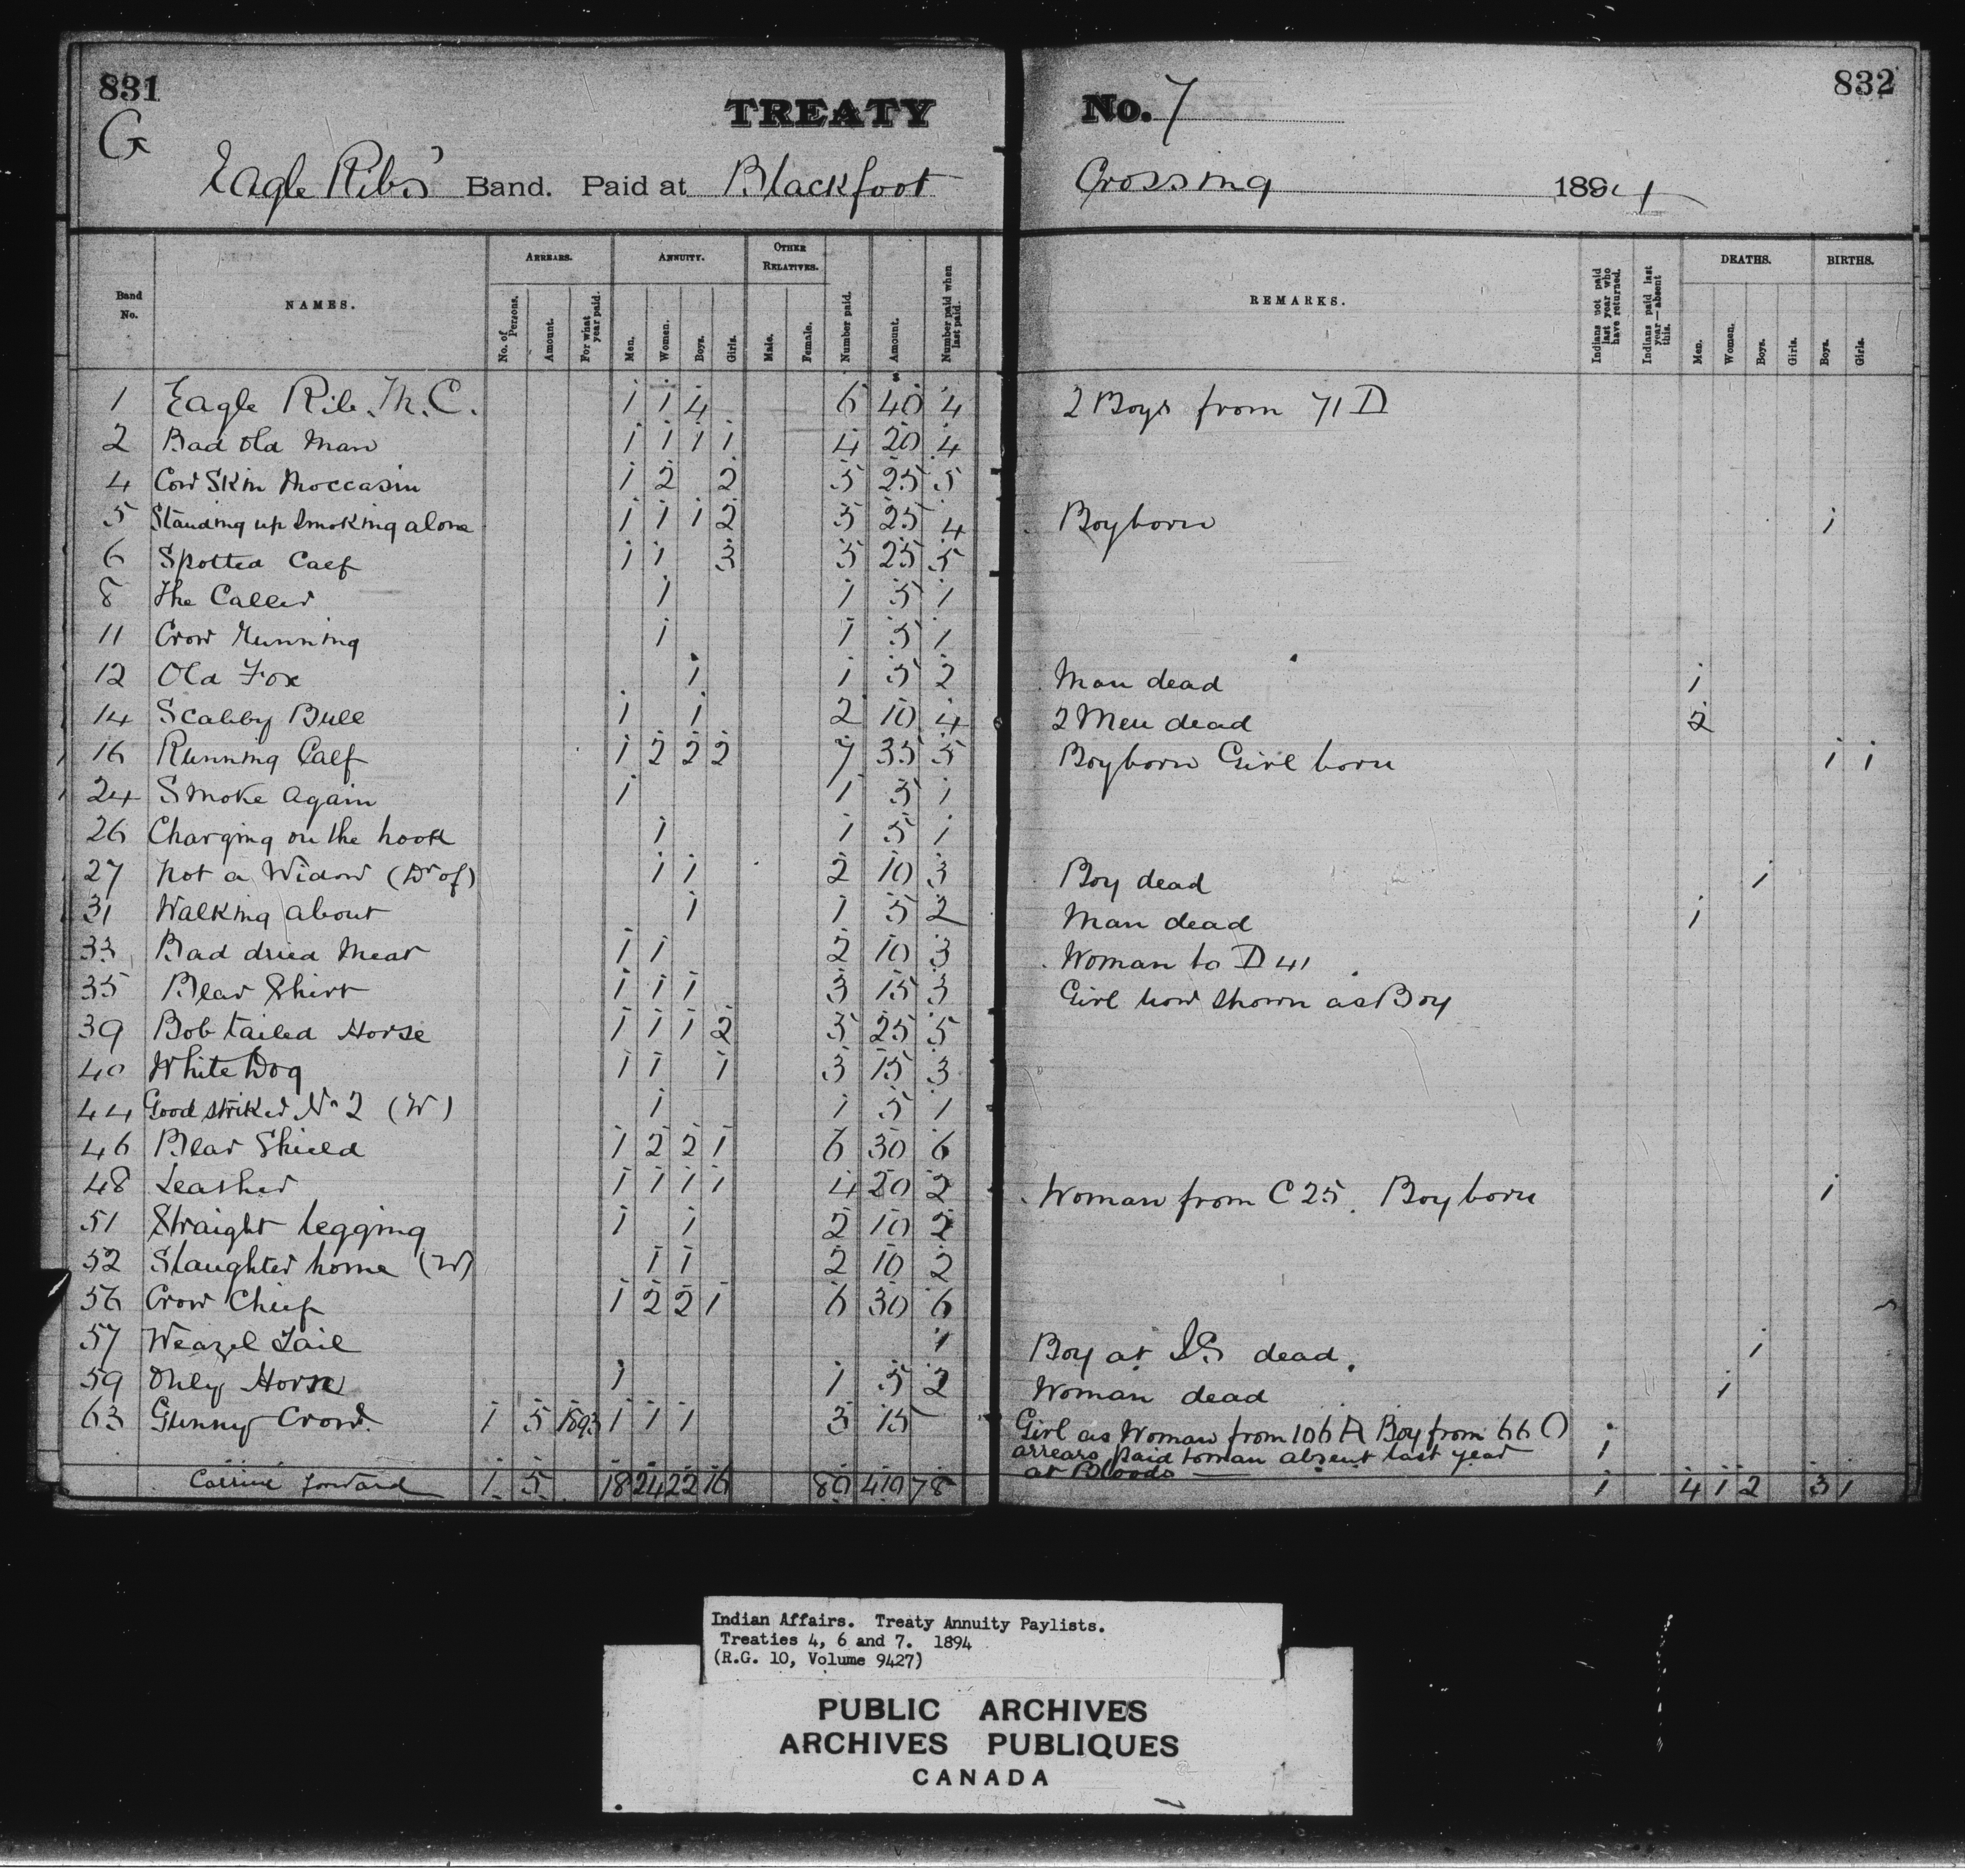 831
832
TREATY No. 7
G
Eagle Ribs' Band. Paid at Blackfoot Crossing 1894
Band No. NAMES. ARREARS. No. of Persons. Amount. For what year paid. ANNUITY. Men. Women. Boys. Girls. OTHER RELATIVES. Male. Female. Number paid. Amount. Number paid when last paid. REMARKS. Indians not paid last year who have returned. Indians paid last year—absent this. DEATHS. Men. Women. Boys. Girls. BIRTHS. Boys. Girls.
1 Eagle Rib. M.C. 1 1 4 6 40 4 2 Boys from 71 D
2 Bad old Man 1 1 1 1 4 20 4
4 Cow Skin Moccasin 1 2 2 5 25 5
5 Standing up Smoking alone 1 1 1 2 5 25 4 Boy born 1
6 Spotted Calf 1 1 3 5 25 5
8 The Caller 1 1 5 1
11 Crow Running 1 1 5 1
12 Old Fox 1 1 5 2 Man dead 1
14 Scabby Bull 1 1 2 10 4 2 Men dead 2
16 Running Calf 1 2 2 2 7 35 5 Boy born Girl born 1 1
24 Smoke Again 1 1 5 1
26 Charging on the hook 1 1 5 1
27 Not a Widow (Dr of) 1 1 2 10 3 Boy dead 1
31 Walking about 1 1 5 2 Man dead 1
33 Bad dried Meat 1 1 2 10 3 Woman to D 41
35 Bear Shirt 1 1 1 3 15 3 Girl now shown as Boy
39 Bob tailed Horse 1 1 1 2 5 25 5
40 White Dog 1 1 1 3 15 3
44 Good striker No 2 (W) 1 1 5 1
46 Bear Shield 1 2 2 1 6 30 6
48 Leather 1 1 1 1 4 20 2 Woman from C 25. Boy born 1
51 Straight legging 1 1 2 10 2
52 Slaughter home (W) 1 1 2 10 2
56 Crow Chief 1 2 2 1 6 30 6
57 Weazel Tail 1 Boy at IS dead. 1
59 Only Horse 1 1 5 2 Woman dead 1
63 Gunny Crow. 1 5 1893 1 1 1 3 15 Girl as Woman from 106 A Boy from 66 O
arrears paid to man absent last year 1
at Bloods
Carried forward 1 5 18 24 22 16 80 410 78 1 4 1 2 3 1
Indian Affairs. Treaty Annuity Paylists.
Treaties 4, 6 and 7. 1894
(R.G. 10, Volume 9427)
PUBLIC ARCHIVES
ARCHIVES PUBLIQUES
CANADA